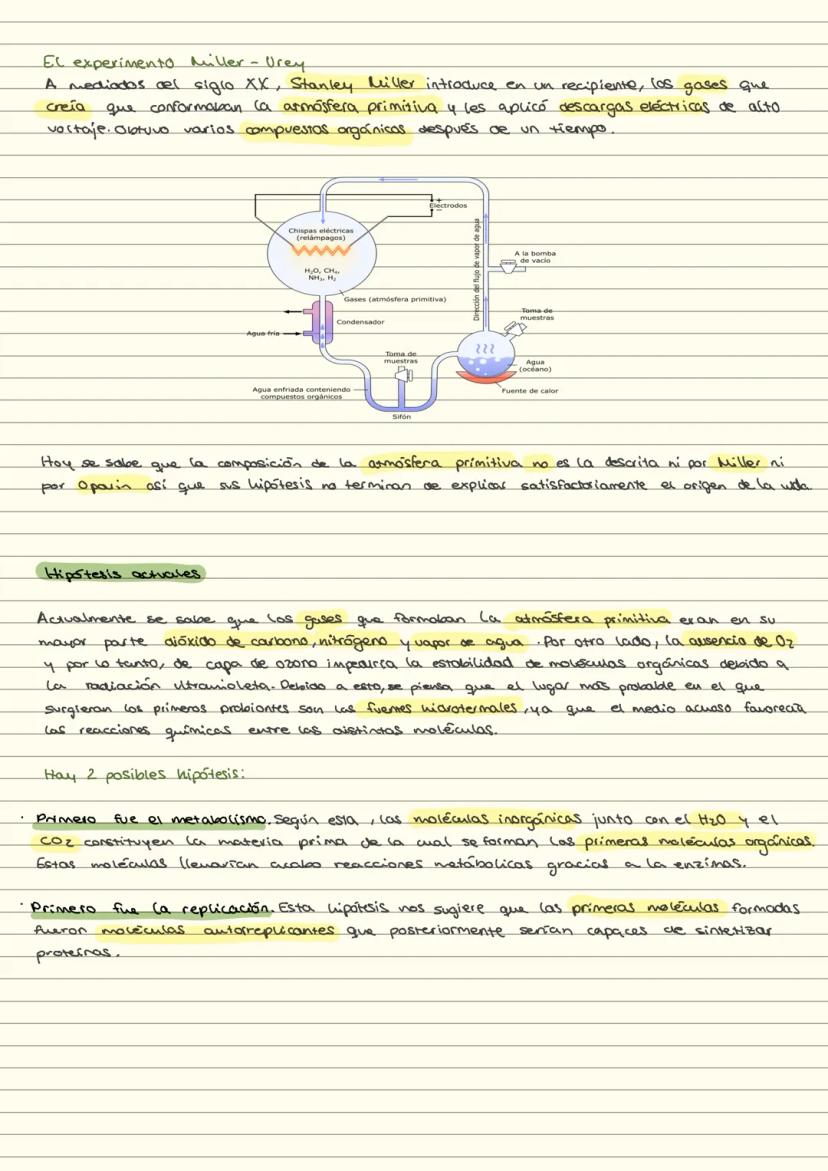 El experimento Miller - Urey
A mediados del siglo XX, Stanley Miller introduce en un recipiente, los gases que
creía que conformaban la atmósfera primitiva y les aplicó descargas eléctricas de alto
voltaje. Obtuvo varios compuestos orgánicos después de un tiempo.
+
Electrodos
−
Chispas eléctricas
(relámpagos)
H₂O, CH₄,
NH₃, H₂
Dirección del flujo de vapor de agua
A la bomba
de vacío
Gases (atmósfera primitiva)
Toma de
muestras
Condensador
Agua fría
Toma de
muestras
Agua
(océano)
Agua enfriada conteniendo
compuestos orgánicos
Fuente de calor
Sifón
Hoy se sabe que la composición de la atmósfera primitiva no es la descrita ni por Miller ni
por Oparin así que sus hipótesis no terminan de explicar satisfactoriamente el origen de la vida.
Hipótesis actuales
Actualmente se sabe que los gases que formaban la atmósfera primitiva eran en su
mayor parte dióxido de carbono, nitrógeno y vapor de agua. Por otro lado, la ausencia de O₂
y por lo tanto, de capa de ozono impediría la estabilidad de moléculas orgánicas debido a
la radiación ultravioleta. Debido a esto, se piensa que el lugar más probable en el que
surgieran los primeros probiontes son las fuentes hidrotermales, ya que el medio acuoso favorecía
las reacciones químicas entre las distintas moléculas.
Hay 2 posibles hipótesis:
· Primero fue el metabolismo. Según esta, las moléculas inorgánicas junto con el H₂O y el
CO₂ constituyen la materia prima de la cual se forman las primeras moléculas orgánicas.
Estas moléculas llevarían acabo reacciones metábolicas gracias a la enzimas.
· Primero fue la replicación. Esta hipótesis nos sugiere que las primeras moléculas formadas
fueron moléculas autorreplicantes que posteriormente serían capaces de sintetizar
proteínas.